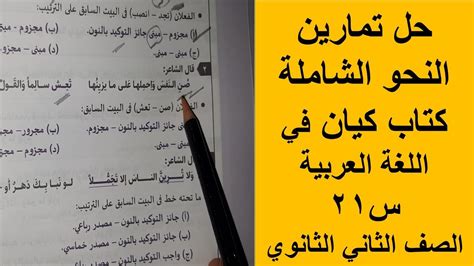 حل تمارين
النحو الشاملة
كتاب كيان في
اللغة العربية
س٢١
الصف الثاني الثانوي
الفعلان (تجد – انصب) فى البيت السابق على الترتيب:
(أ) مجزوم – مبنى جائز التوكيد بالنون.
(ج) مبنى – مبنى.
٢ قال الشاعر:
صُنِ النفسَ واحملها على ما يزينُها تعِشْ سالماً والقول
(صن – تعش) فى البيت السابق:
مبنى جائز التوكيد بالنون. (ب) مجزوم –
(د) مجزوم
ولا تُرِيَنَّ الناسَ إلا تجمُّلاً
ما تحته خط فى البيت السابق على الترتيب:
(أ) جائز التوكيد بالنون – مصدر رباعى.
جائز التوكيد بالنون – مصدر خماسى.
واجب التوكيد بالنون – مصدر